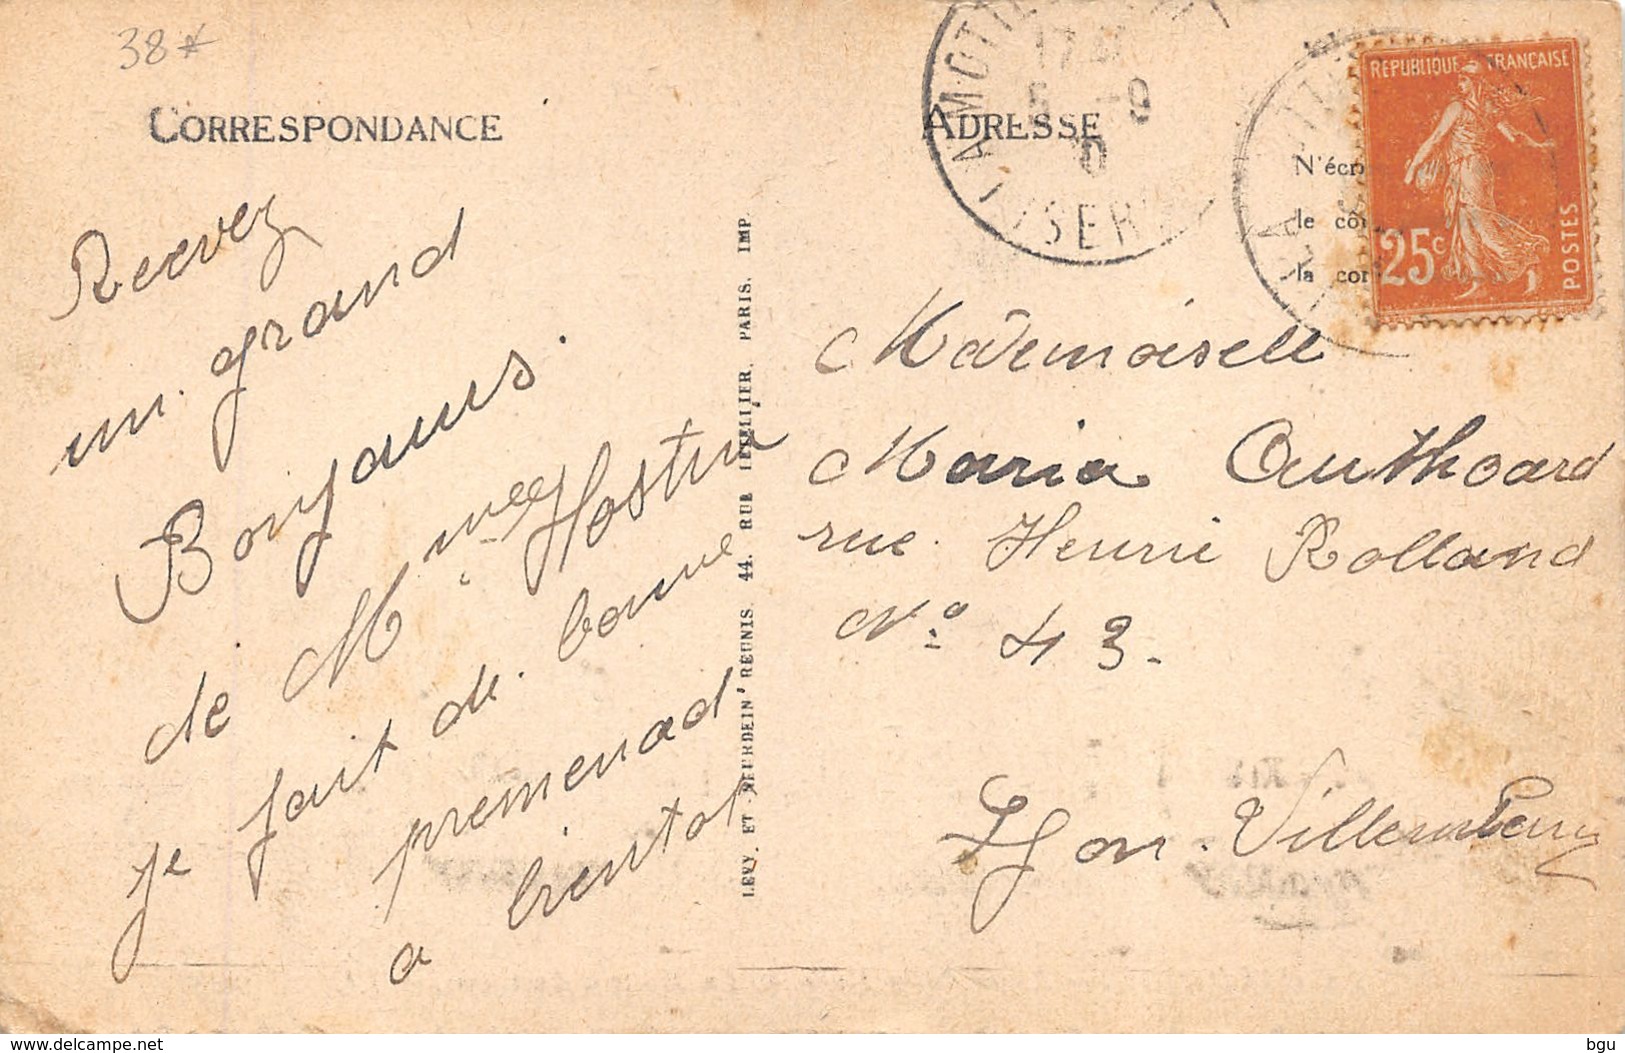 38*
CORRESPONDANCE
Recevez
un grand
Bonjours.
de Mme Hostin
je fait de bonne
promenad
a bientot
LEVY ET NEURDEIN RÉUNIS 44, RUE LETELLIER, PARIS. IMP.
ADRESSE
LA MOTTE
17
ISERE
N'écr
le côt
la cor
REPUBLIQUE FRANÇAISE
25c
POSTES
Mademoiselle
Maria Authoard
rue Henrie Rolland
No 43.
Lyon. Villeurbanne
bgu
www.delcampe.net